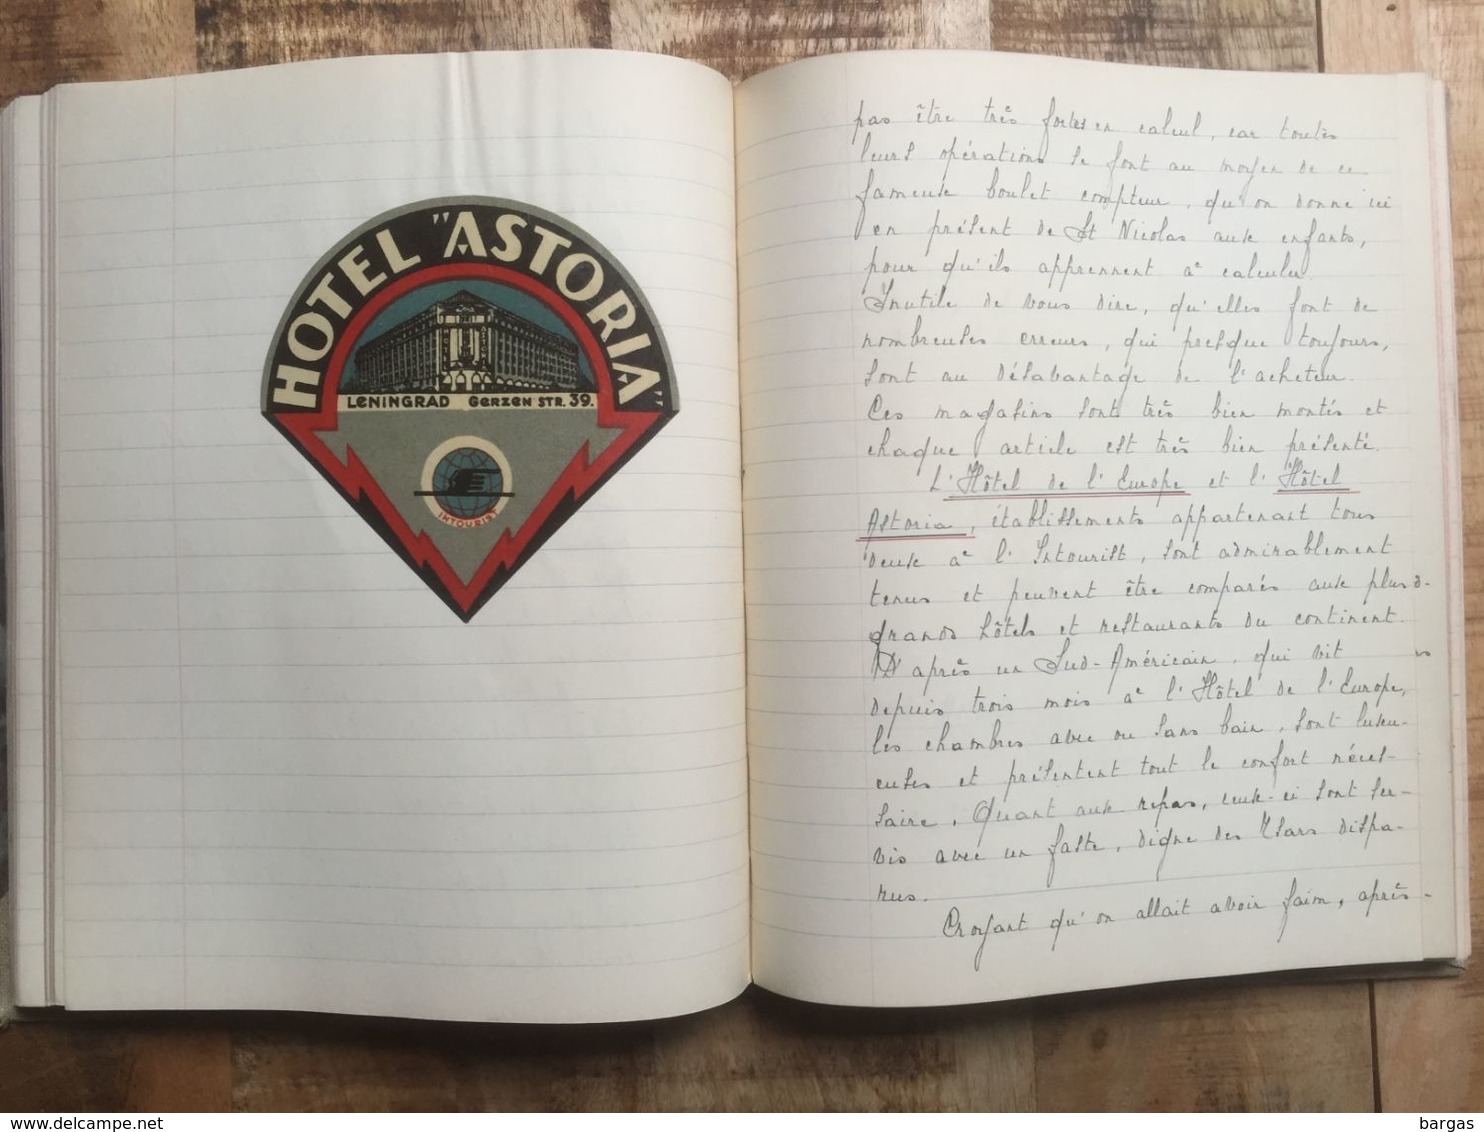 HOTEL "ASTORIA"
LENINGRAD GERZEN STR. 39.
INTOURIST
pas être très fortes en calcul, car toutes
leurs opérations se font au moyen de ce
fameux boulet compteur, qu'on donne ici
en présent de St Nicolas aux enfants,
pour qu'ils apprennent à calculer.
Inutile de vous dire, qu'elles font de
nombreuses erreurs, qui presque toujours,
sont au désavantage de l'acheteur.
Ces magasins sont très bien montés et
chaque article est très bien présenté.
L'Hôtel de l'Europe et l'Hôtel
Astoria, établissements appartenant tous
deux à l'Intourist, sont admirablement
tenus et peuvent être comparés aux plus
grands hôtels et restaurants du continent.
D'après un Sud-Américain, qui vit
depuis trois mois à l'Hôtel de l'Europe,
les chambres avec ou sans bain, sont luxu-
euses et présentent tout le confort néces-
saire. Quant aux repas, ceux-ci sont ser-
vis avec un faste, digne des Tsars dispa-
rus.
Croyant qu'on allait avoir faim, après-
delcampe.net
bargas